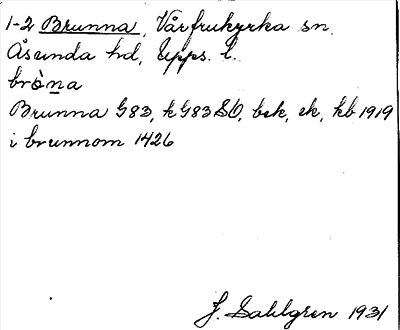 1-2 Brunna, Vårfrukyrka sn.
Åsunda hd, Upps. l.
bròna
Brunna G83, k G83 SO, bek, ek, kb 1919
i brunnom 1426
J. Sahlgren 1931